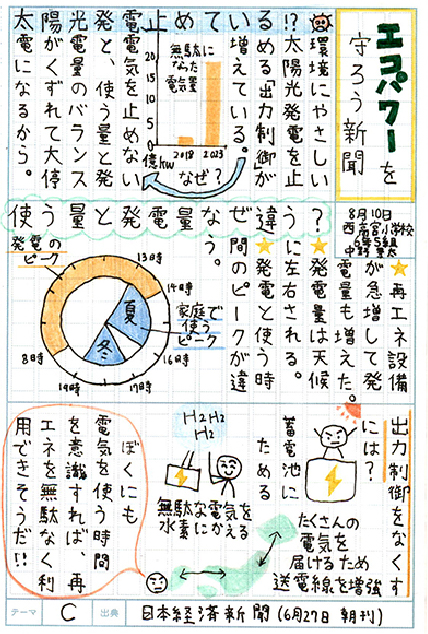 エコパワーを
守ろう新聞
8月10日
西高宮小学校
6年5組
環境にやさしい
!?太陽光発電を止
める「出力制御」が
増えている。
無駄に
なった
電気量
20
15
10
5
0
億kw
2018
2023
なぜ？
電気を止めない
発と、使う量と発
光電量のバランス
陽がくずれて大停
太電になるから。
止めている
使う量と発電量なぜ違う？
★再エネ設備
が急増して発
電量も増えた。
★発電量は天候
に左右される。
★発電と使う時
間のピークが違
う。
発電の
ピーク
13時
14時
家庭で
使う
ピーク
16時
17時
19時
8時
夏
冬
出力制御をなくす
には？
蓄電池に
ためる
H2 H2
H2
無駄な電気を
水素にかえる
たくさんの
電気を
届けるため
送電線を増強
ぼくにも
電気を使う時間
を意識すれば、再
エネを無駄なく利
用できそうだ!!
テーマ C 出典 日本経済新聞(6月27日 朝刊)